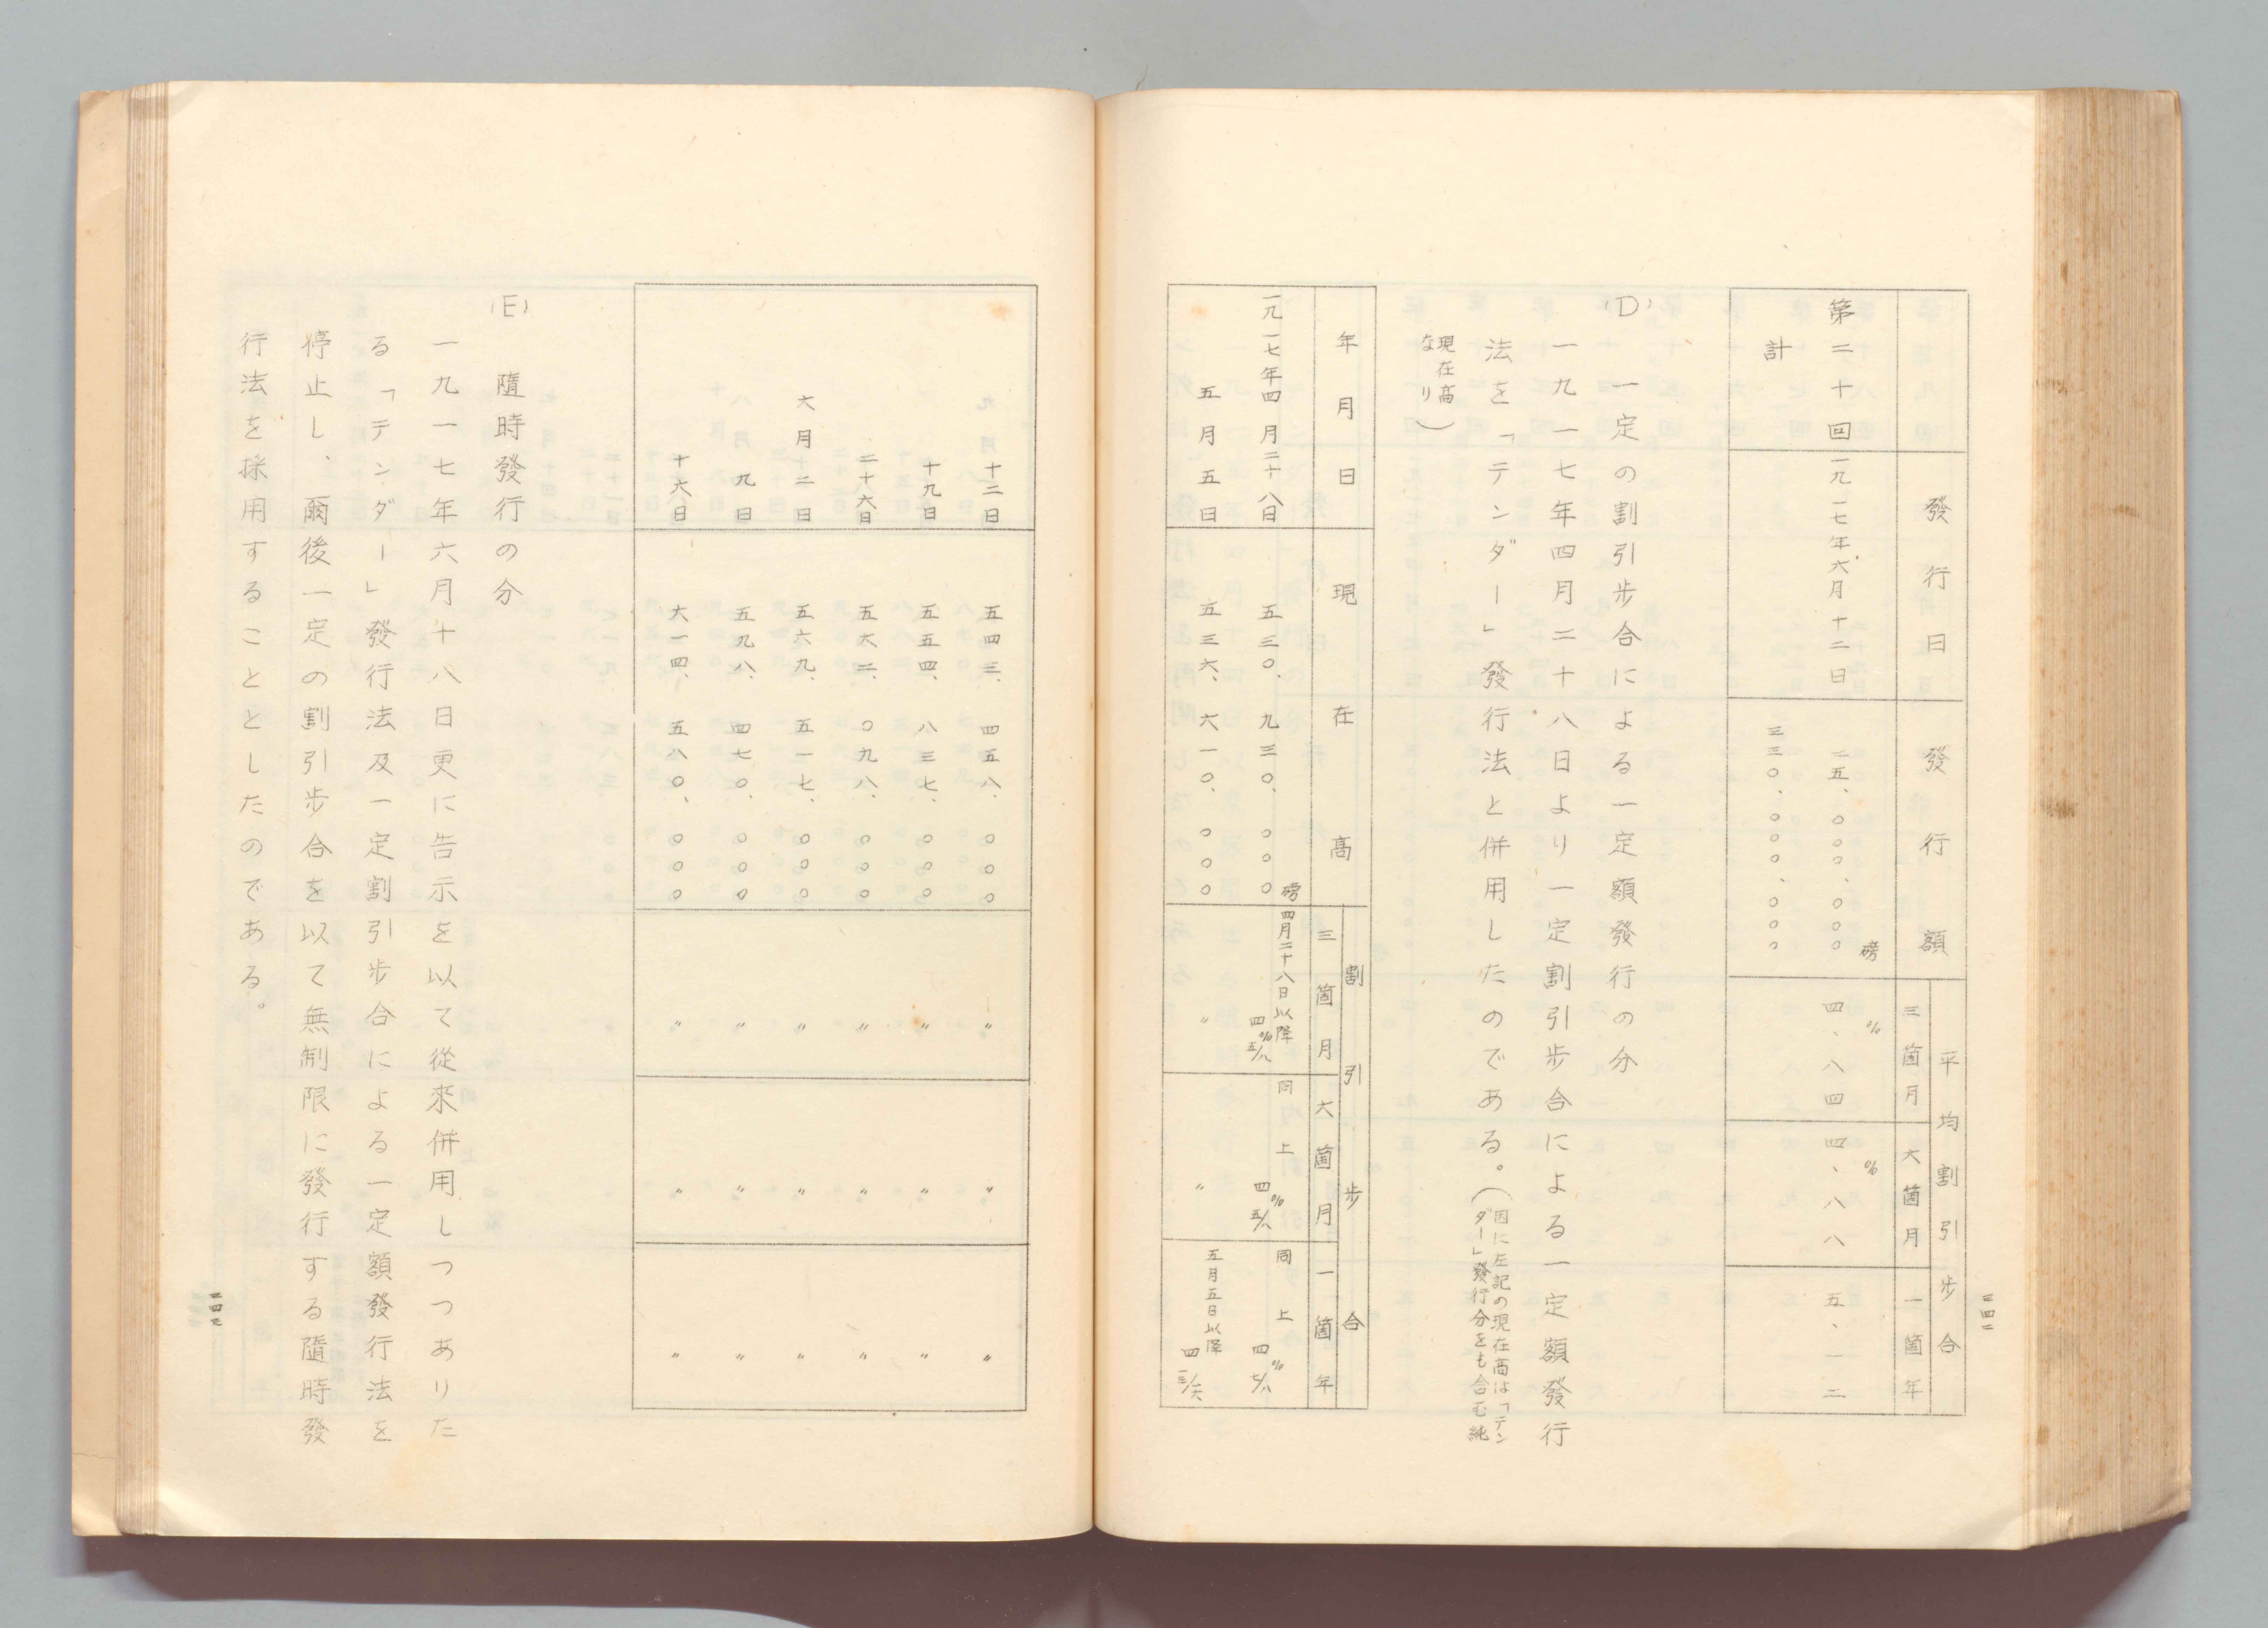 二四二
發行日
發行額
平均割引步合
三箇月
六箇月
一箇年
第二十回
一九一七年六月十二日
二五、〇〇〇、〇〇〇磅
四、八四%
四、八八%
五、一二
計
三三〇、〇〇〇、〇〇〇
(D) 一定の割引步合による一定額發行の分
一九一七年四月二十八日より一定割引步合による一定額發行
法を「テンダー」發行法と併用したのである。(因に左記の現在高は「テン
ダー」發行分をも合む純
現在高
なり)
年月日
現在高
割引步合
三箇月
六箇月
一箇年
一九一七年四月二十八日
五三〇、九三〇、〇〇〇磅
四月二十八日以降
四%五/八
同上
四%五/八
同上
四%七/八
五月五日
五三六、六一〇、〇〇〇
〃
〃
五月五日以降
四 三/六
十二日
五四三、四五八、〇〇〇
〃
〃
〃
十九日
五五四、八三七、〇〇〇
〃
〃
〃
二十六日
五六二、〇九八、〇〇〇
〃
〃
〃
六月二日
五六九、五一七、〇〇〇
〃
〃
〃
九日
五九八、四七〇、〇〇〇
〃
〃
〃
十六日
六一四、五八〇、〇〇〇
〃
〃
〃
(E) 隨時發行の分
一九一七年六月十八日更に告示を以て從來併用しつつありた
る「テンダー」發行法及一定割引步合による一定額發行法を
停止し、爾後一定の割引步合を以て無制限に發行する隨時發
行法を採用することとしたのである。
二四三